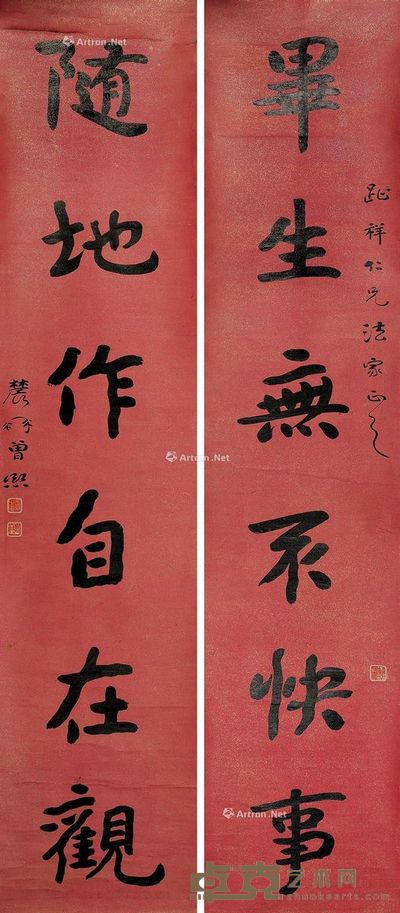 畢生無不快事
趾祥仁兄法家正之
隨地作自在觀
農髯曾熙
Artron.Net
Artron.Net
Artron.Net
Artron.Net
Artron.Net
Artron.Net
卓克艺术网